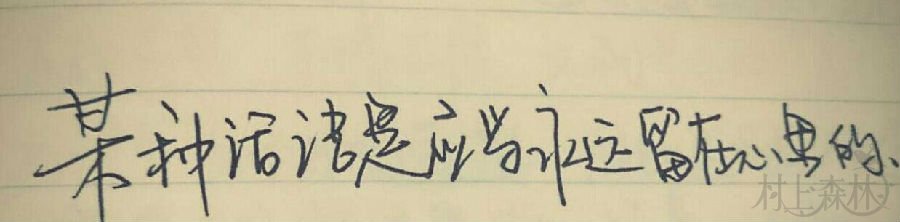 某种话语是应当永远留在心里的、
村上森林